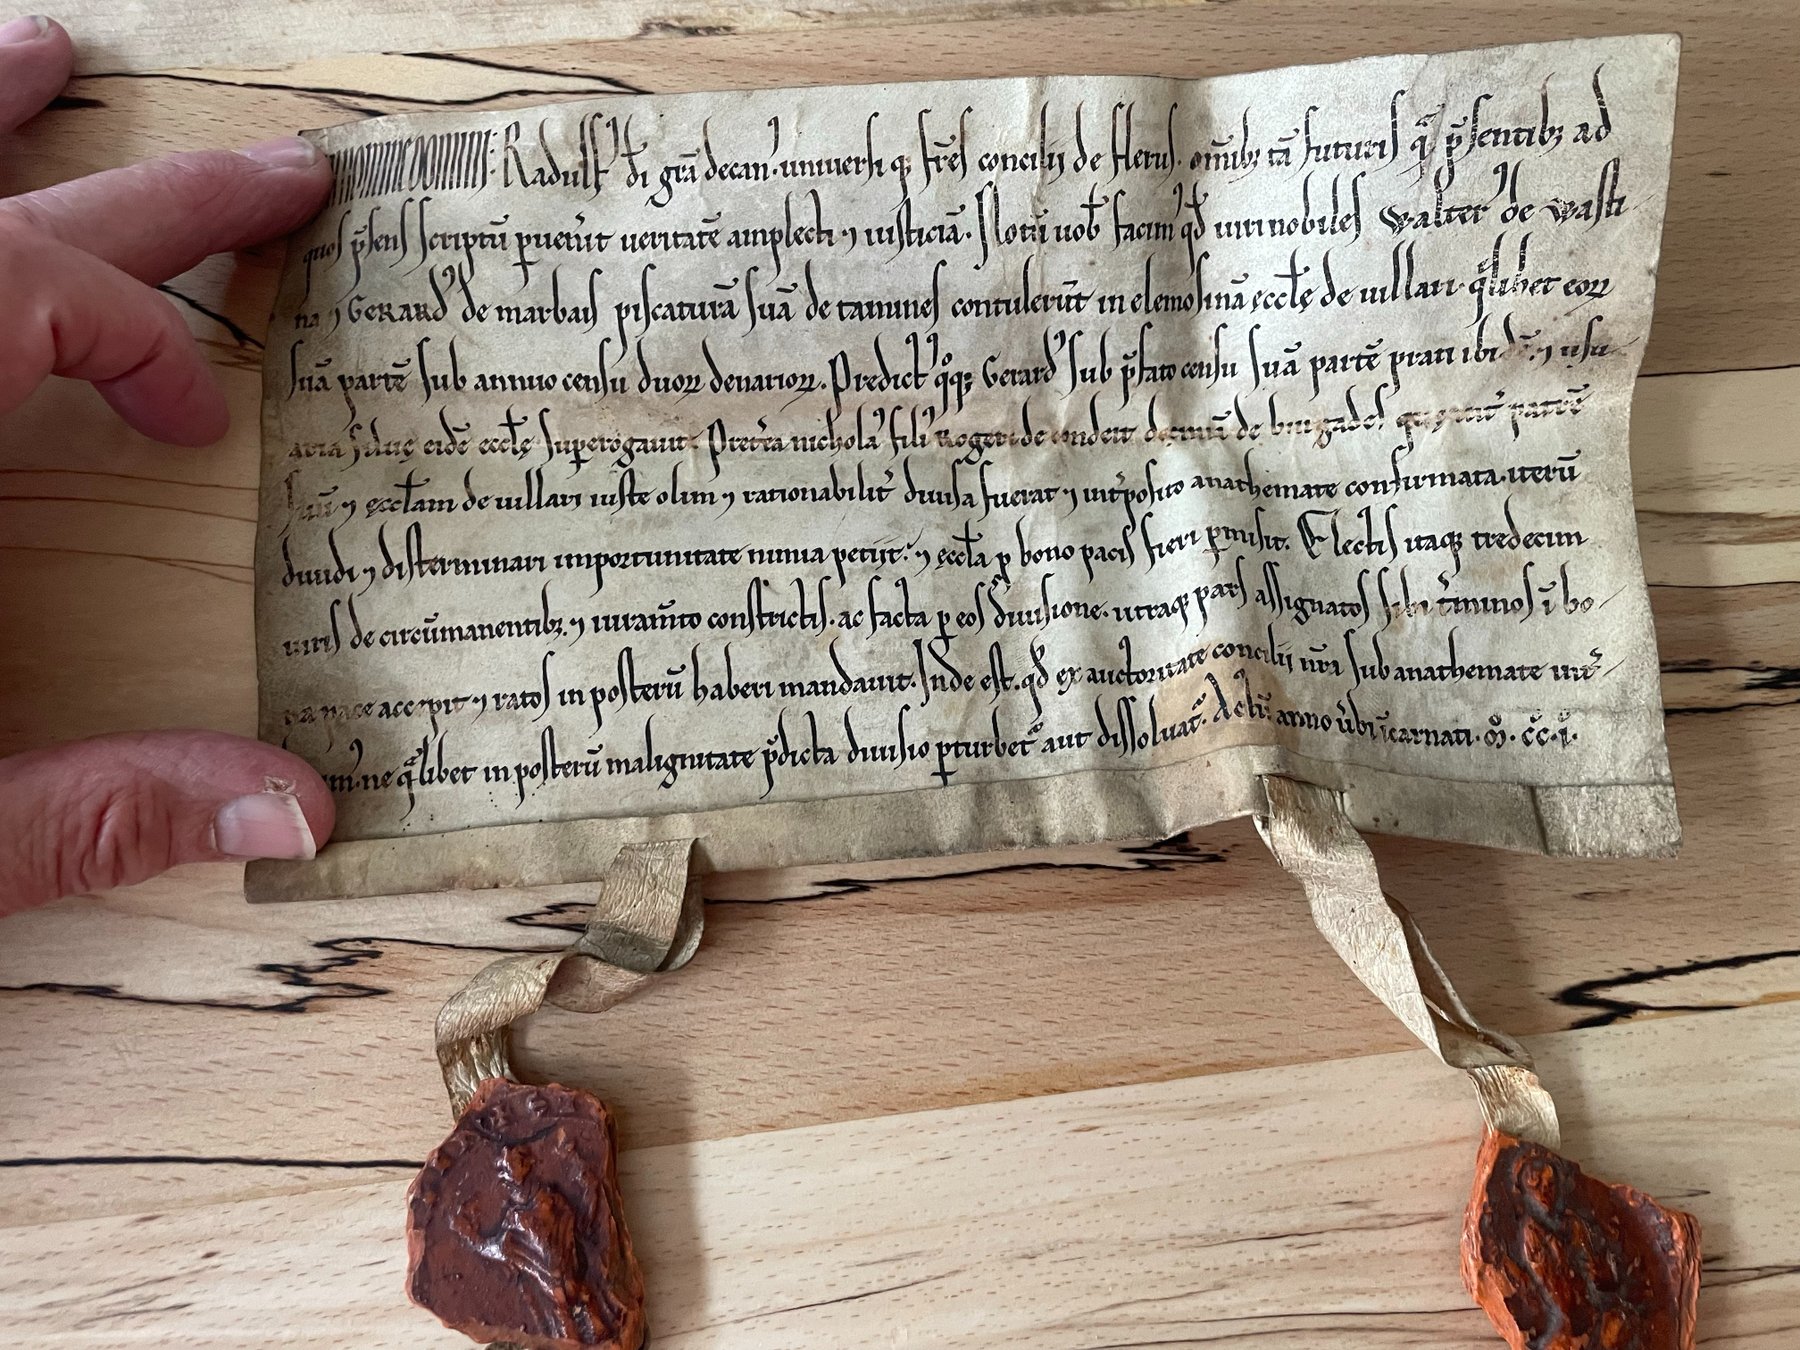 Radulf' dī grā decan'. universi q; frēs concilii de flerus. omīb; tā futuris q̄ p̄sentib; ad
quos p̄sens scriptū pven̄it veritatē amplecti ⁊ iusticiā. Notū vob̄ facim' qd̄ viri nobiles walter' de wasti
na ⁊ GERARD' de marbais piscaturā suā de tamines contulerūt in elemosinā ęccl̄ę de villari. q̄libet eoꝝ
suā partē sub annuo censu duoꝝ denarioꝝ. Predict' q̊q; Gerard' sub p̄fato censu suā partē prati ibidē. ⁊ usu
aria silvę eidē eccl̄ę supererogavit. Pret̄ea nichola' fili' Rogeri de decimā de q̄ int̄ patrē
suū ⁊ ęccl̄am de villari iuste olim ⁊ rationabilit̄ divisa fuerat ⁊ int̄posito anathemate confirmata. iterū
dividi ⁊ disterminari importunitate nimia petiit. ⁊ ęccl̄a ꝑ bono pacis fieri ꝑmisit. Electis itaq; tredecim
viris de circūmanentib;. ⁊ iuram̄to constrictis. ac facta ꝑ eos divisione. utraq; pars assignatos sibi t̄minos ī bo-
na pace accepit ⁊ ratos in posterū haberi mandavit. Inde est. qd̄ ex auctoritate concilii nr̄i sub anathemate int̄-
ne q̄libet in posterū malignitate p̄dicta divisio ꝑturbet̄ aut dissolvat̄. Actū anno v̄bi īcarnati. M̊. c̊c̊. i̊.